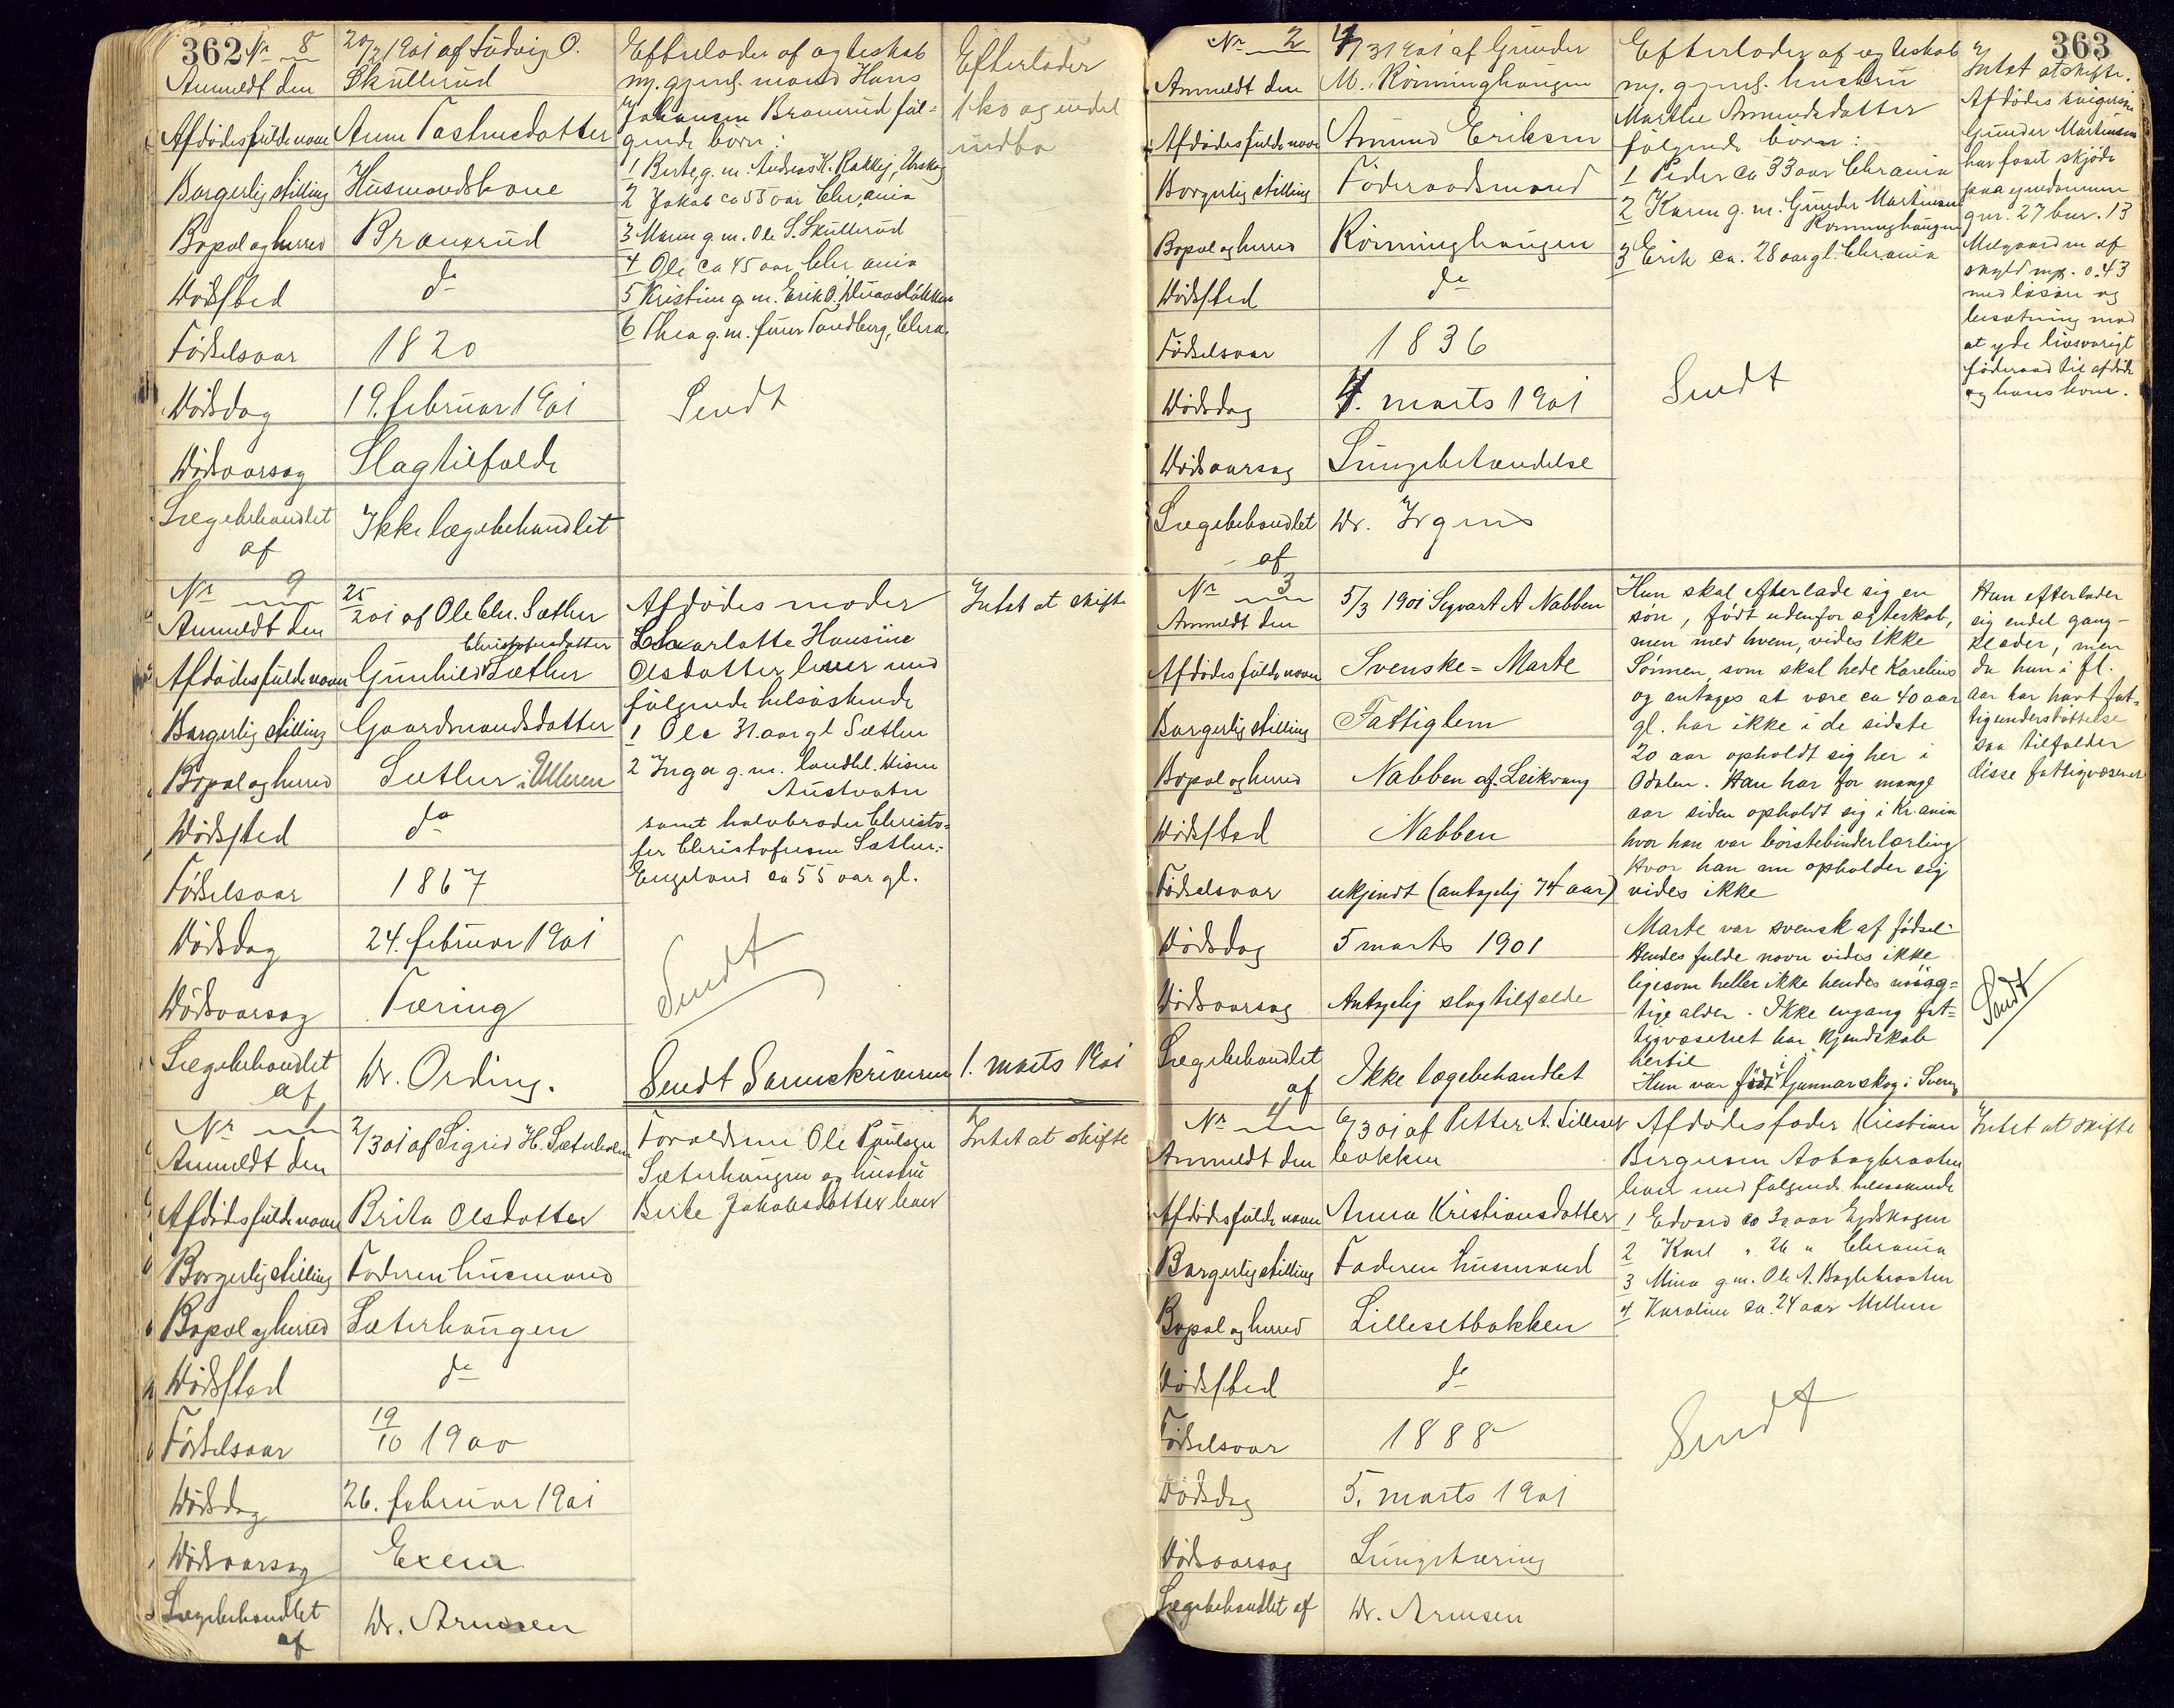 362
Nr 8
Anmeldt den
20/2 1901 af Ludvig O.
Skullerud
Afdødes fulde navn
Anne Tostensdatter
Borgerlig stilling
Husmandskone
Bopæl og herred
Branerud
Dødssted
do
Fødselsaar
1820
Dødsdag
19. februar 1901
Dødsaarsag
Slagtilfælde
Lægebehandlet
af
Ikke lægebehandlet
Efterlader af ægteskab
m. gjenl. mand Hans
Johansen Branerud føl-
gende børn:
1 Berte, g. m. Andreas K. Urskog
2 Jakob ca 55 aar Chr.ania
3 Maren g. m. Ole S. Skullerud
4 Ole ca 45 aar Chr ania
5 Kristine g m. Erik O.
6 Thea g. m. Tandberg, Chra.
Sendt
Efterlader
1 ko og endel
indbo
Nr 9
Anmeldt den
25
2 01 af Ole Chr. Sæther
Afdødes fulde navn
Christofersdatter
Gunhild Sæther
Borgerlig stilling
Gaardmandsdatter
Bopæl og herred
Sæther i Ulleren
Dødssted
do
Fødselsaar
1867
Dødsdag
24. februar 1901
Dødsaarsag
Tæring
Lægebehandlet
af
Dr. Ording.
Afdødes moder
Charlotte Hansine
Olsdatter lever med
følgende helsøskende
1 Ole 31 aar gl Sæther
2 Inga g. m. landhl.
Austvatn
samt halvbroder Christo-
fer Christofersen Sæther-
Engeland ca 55 aar gl.
Sendt
Intet at skifte
Sendt Sorenskriveren 1. marts 1901
Nr 1
Anmeldt den
2/3 01 af Sigrid H. Sæterholen
Afdødes fulde navn
Brita Olsdatter
Borgerlig stilling
Faderen husmand
Bopæl og herred
Sæterhaugen
Dødssted
do
Fødselsaar
19
10 1900
Dødsdag
26. februar 1901
Dødsaarsag
Exem
Lægebehandlet
af
Dr. Arnesen
Forældrene Ole Paulsen
Sæterhaugen og hustru
Berte Jakobsdatter lever
Intet at skifte
363
Nr 2
Anmeldt den
4/3 1901 af Gunder
M. Rönninghaugen
Afdødes fulde navn
Amund Eriksen
Borgerlig stilling
Föderaadsmand
Bopæl og herred
Rönninghaugen
Dødssted
do
Fødselsaar
1836
Dødsdag
4. marts 1901
Dødsaarsag
Lungebetændelse
Lægebehandlet
af
Dr. Irgens
Efterlader af ægteskab
m. gjenl. hustru
Marthe Amundsdatter
følgende børn:
1 Peder ca 33 aar Chr.ania
2 Karen g. m. Gunder Martinsen
Rönninghaugen
3 Erik ca. 28 aar gl. Chrania
Sendt
Intet at skifte.
Afdødes svigersøn
Gunder Martinsen
har faaet skjöde
paa eiendommen
gnr. 27 bnr. 13
af
skyld mrk. 0.43
med løsøre og
besætning mod
at yde livsvarigt
föderaad til afdöde
og hans kone.
Nr 3
Anmeldt den
5/3 1901 Segvart A Nabben
Afdødes fulde navn
Svenske-Marte
Borgerlig stilling
Fattiglem
Bopæl og herred
Nabben af Leikvang
Dødssted
Nabben
Fødselsaar
ukjendt (antagelig 74 aar)
Dødsdag
5 marts 1901
Dødsaarsag
Antagelig slagtilfælde
Lægebehandlet
af
Ikke lægebehandlet
Hun skal efterlade sig en
søn, født udenfor ægteskab,
men med hvem, vides ikke
Sønnen, som skal hede Karelius
og antages at være ca 40 aar
gl. har ikke i de sidste
20 aar opholdt sig her i
Odalen. Han har for mange
aar siden opholdt sig i Kr.ania
hvor han var børstebinderlærling
Hvor han nu opholder sig
vides ikke
Marte var svensk af fødsel.
Hendes fulde navn vides ikke
ligesom heller ikke hendes nøiag-
tige alder. Ikke engang fat-
tigvæsenet har kjendskab
hertil
Hun var født i Gunnarskog i Sverig
Hun efterlader
sig endel gang-
klæder, men
da hun i fl.
aar har havt fat-
tigunderstøttelse
saa tilfalder
disse fattigvæsenet
Sendt
Nr 4
Anmeldt den
6/3 01 af Petter A. Lilleset
bakken
Afdødes fulde navn
Anna Kristiansdatter
Borgerlig stilling
Faderen husmand
Bopæl og herred
Lillesetbakken
Dødssted
do
Fødselsaar
1888
Dødsdag
5. marts 1901
Dødsaarsag
Lungetæring
Lægebehandlet af
Dr. Arnesen
Afdødes fader Kristian
Bergersen Aabogbraaten
lever med følgende helsøskende
1 Edvard ca 30 aar Eidskogen
2 Karl " 26 " Chrania
3 Mina g. m. Ole A. Boglebraaten
4 Karoline ca. 24 aar Mellem
Sendt
Intet at skifte